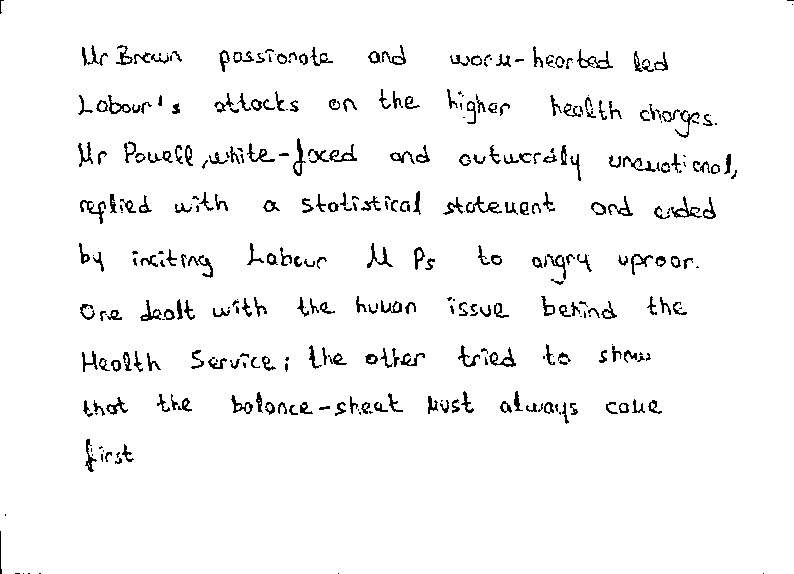 Mr Brown passionate and warm-hearted led
Labour's attacks on the higher health charges.
Mr Powell, white-faced and outwardly unemotional,
replied with a statistical statement and ended
by inciting Labour M Ps to angry uproar.
One dealt with the human issue behind the
Health Service; the other tried to show
that the balance-sheet must always come
first